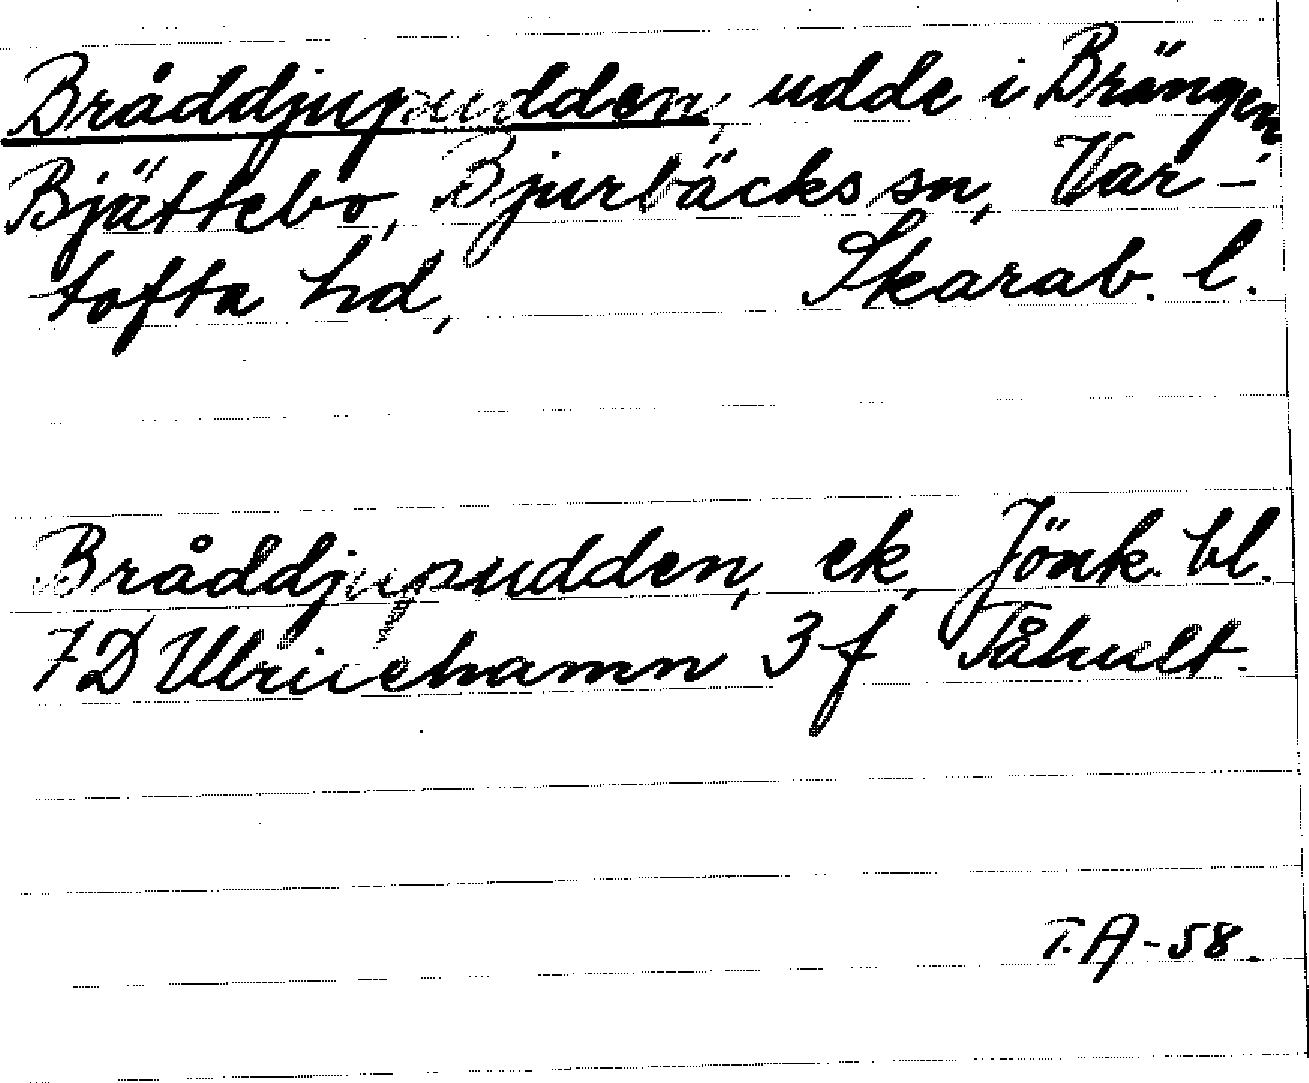 Bråddjupudden, udde i Brängen
Bjättebo, Bjurbäcks sn, Var-
tofta hd, Skarab. l.
Bråddjupudden, ek, Jönk. bl.
7D Ulricehamn 3 f Tåhult.
T.A-58.